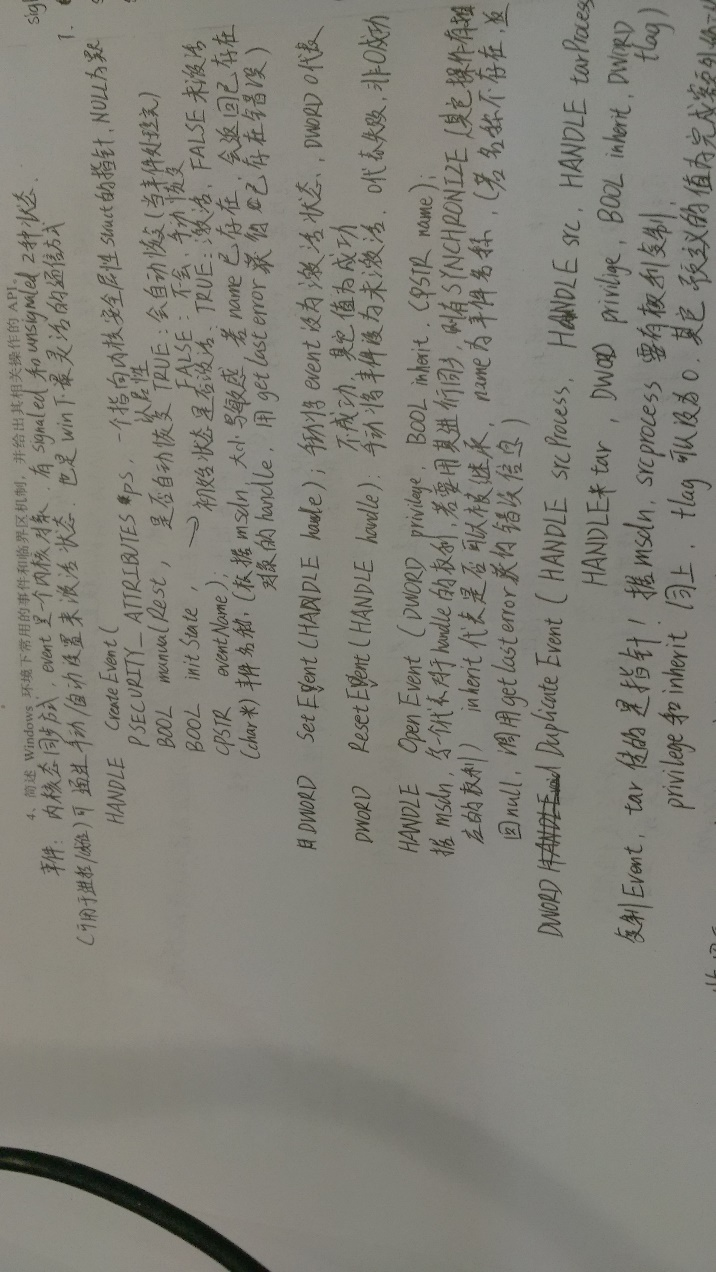 4、简述 Windows 环境下常用的事件和临界区机制，并给出其相关操作的 API。
事件: 内核态同步方式, event是一个内核对象. 有signaled 和unsignaled 2种状态.
(可用于进程/线程)可通过手动/自动设置来激活状态. 也是win下最灵活的通信方式
HANDLE CreateEvent(
PSECURITY_ATTRIBUTES ps, 一个指向内核安全属性struct的指针, NULL为默认属性
BOOL manualRest, 是否自动恢复 TRUE: 会自动恢复(当事件处理完)
FALSE: 不会, 手动恢复
BOOL initState, 初始状态是否激活: TRUE: 激活, FALSE未激活
CPSTR eventName);
(char*)事件名称,(根据msdn 大小写敏感 若name已存在, 会返回已存在
对象的handle, 用getlasterror获得已存在错误)
DWORD SetEvent(HANDLE handle); 手动将event设为激活状态, DWORD 0代表
不成功, 其它值为成功
DWORD ResetEvent(HANDLE handle): 手动将事件设为未激活. 0代表失败, 非0成功
HANDLE OpenEvent(DWORD privilege, BOOL inherit, CPSTR name);
据msdn, 第一个代表对于handle的权利,若要用其进行同步,则有SYNCHRONIZE(其它操作有相
应的权利) inherit代表是否可以被继承, name为事件名称,(若名称不存在,返
回null, 调用getlasterror获得错误信息)
DWORD DuplicateEvent(HANDLE srcProcess, HANDLE src, HANDLE tarProcess
HANDLE* tar, DWOD privilige, BOOL inherit, DWORD
flag)
复制Event, tar 传的是指针! 据msdn, srcprocess 要有权利复制,
privilege和inherit同上, flag可以设为0.